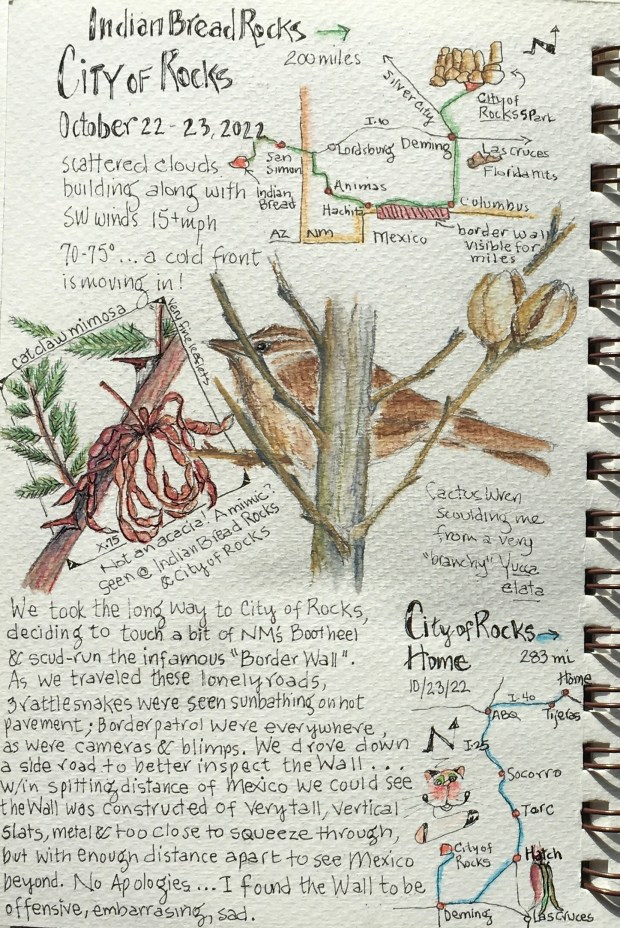 Indian Bread Rocks →
City of Rocks
200 miles
October 22-23, 2022
scattered clouds
building along with
SW winds 15+mph
70-75°... a cold front
is moving in!
N
Silver City
City of
Rocks SPark
I-10
Lordsburg
Deming
Las Cruces
Florida mts
San
Simon
Indian
Bread
Animas
Hachita
Columbus
AZ
NM
Mexico
border wall
visible for
miles
catclaw mimosa
very fine leaflets
x.75
Not an acacia! A mimic?
Seen @ Indian Bread Rocks
& City of Rocks
Cactus Wren
scoulding me
from a very
"branchy" Yucca
elata
We took the long way to City of Rocks,
deciding to touch a bit of NM's Bootheel
& scud-run the infamous "Border Wall".
As we traveled these lonely roads,
3 rattlesnakes were seen sunbathing on hot
pavement; Border patrol were everywhere,
as were cameras & blimps. We drove down
a side road to better inspect the Wall...
w/in spitting distance of Mexico we could see
the Wall was constructed of very tall, vertical
slats, metal & too close to squeeze through,
but with enough distance apart to see Mexico
beyond. No Apologies... I found the Wall to be
offensive, embarrasing, sad.
City of Rocks →
Home
283 mi
10/23/22
Home
I-40
ABQ
Tijeras
N
I-25
Socorro
TorC
City of
Rocks
Hatch
Deming
Las Cruces